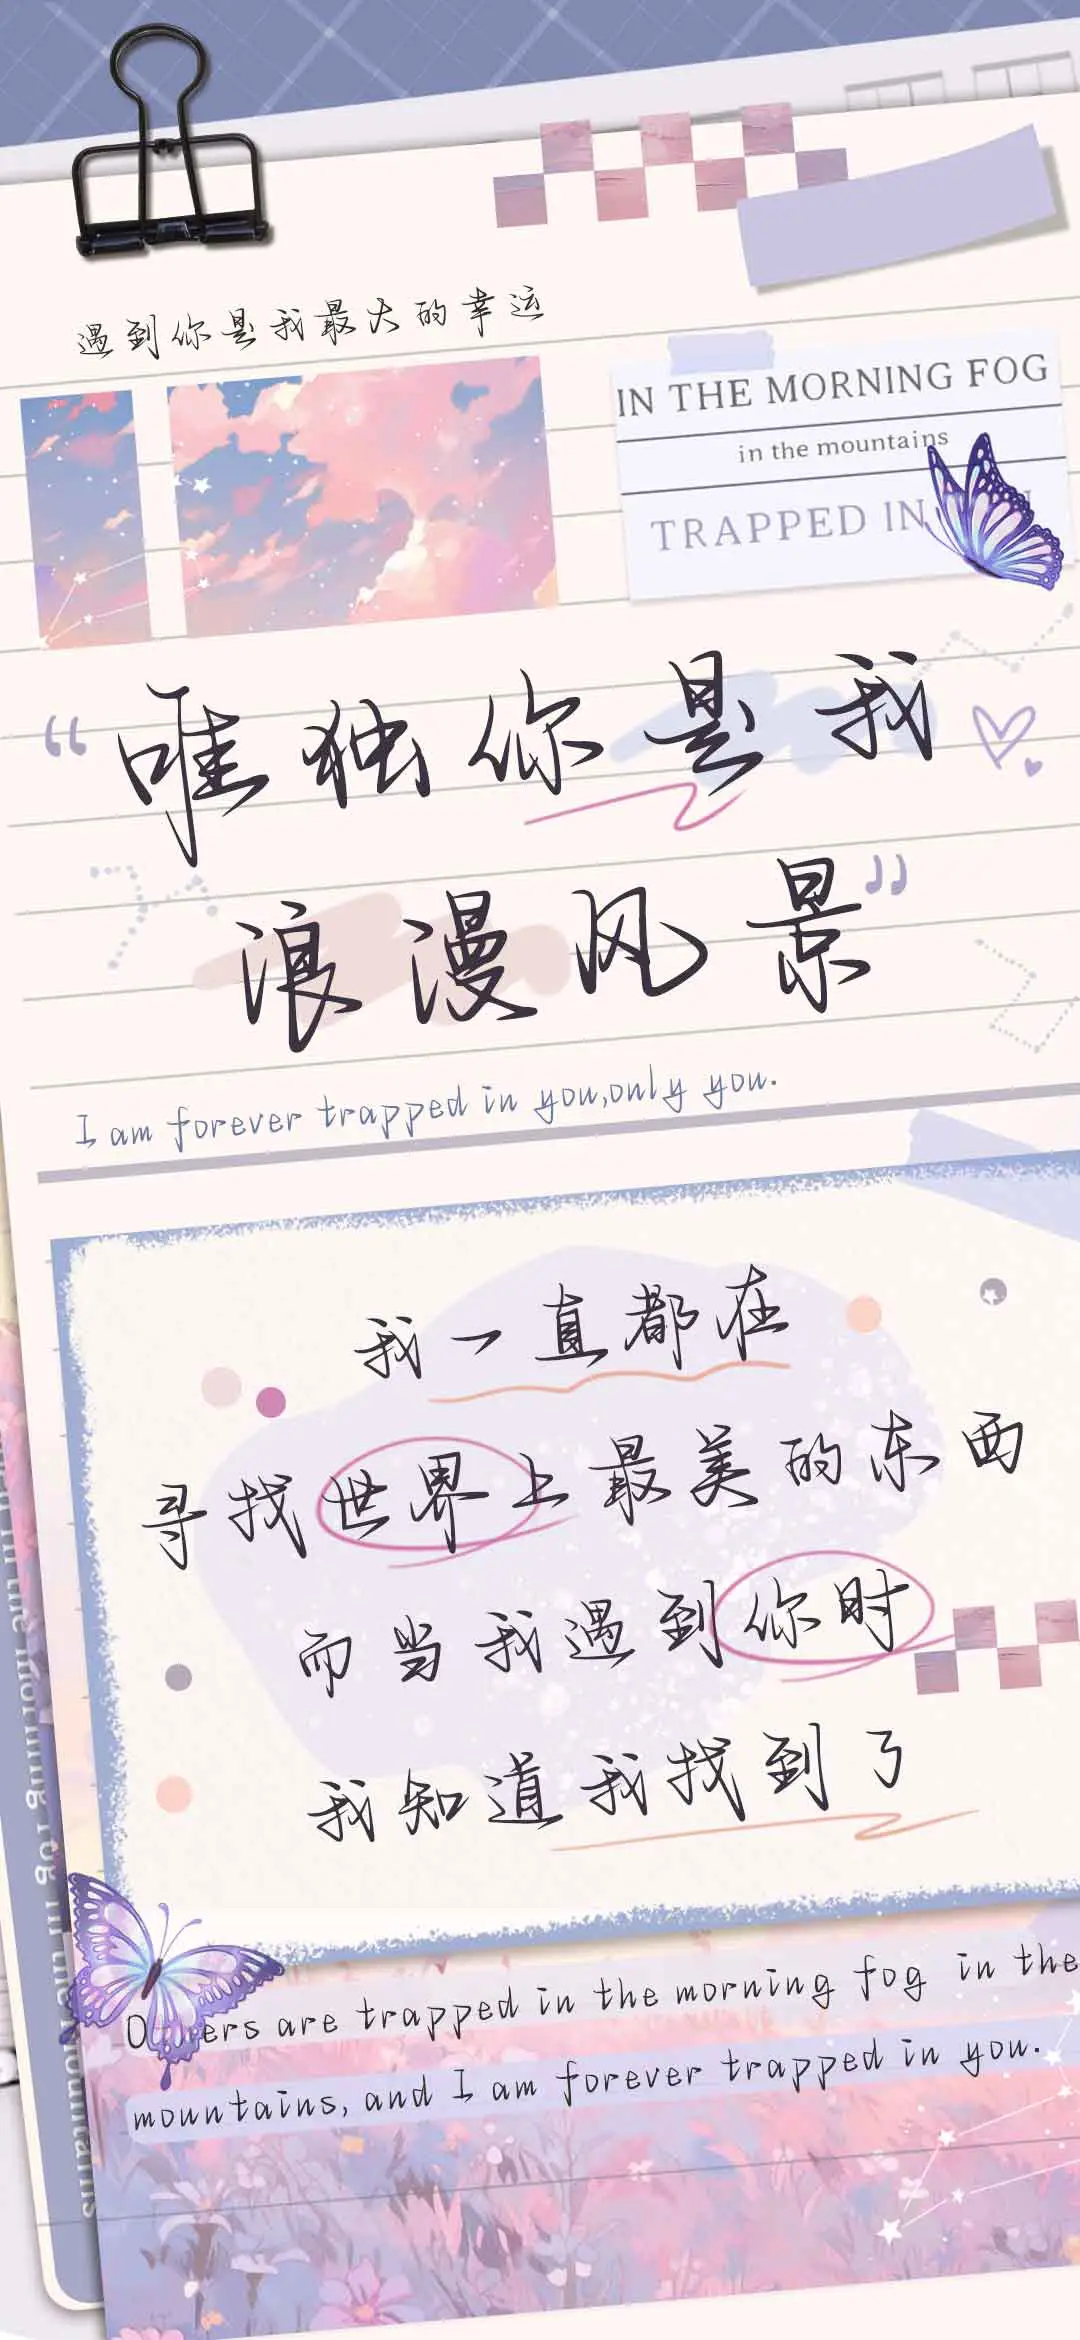 遇到你是我最大的幸运
IN THE MORNING FOG
in the mountains
TRAPPED IN
“唯独你是我
浪漫风景”
I am forever trapped in you,only you.
我一直都在
寻找世界上最美的东西
而当我遇到你时
我知道我找到了
are trapped in the morning fog in the
mountains, and I am forever trapped in you.
in the morning fog in the mountains